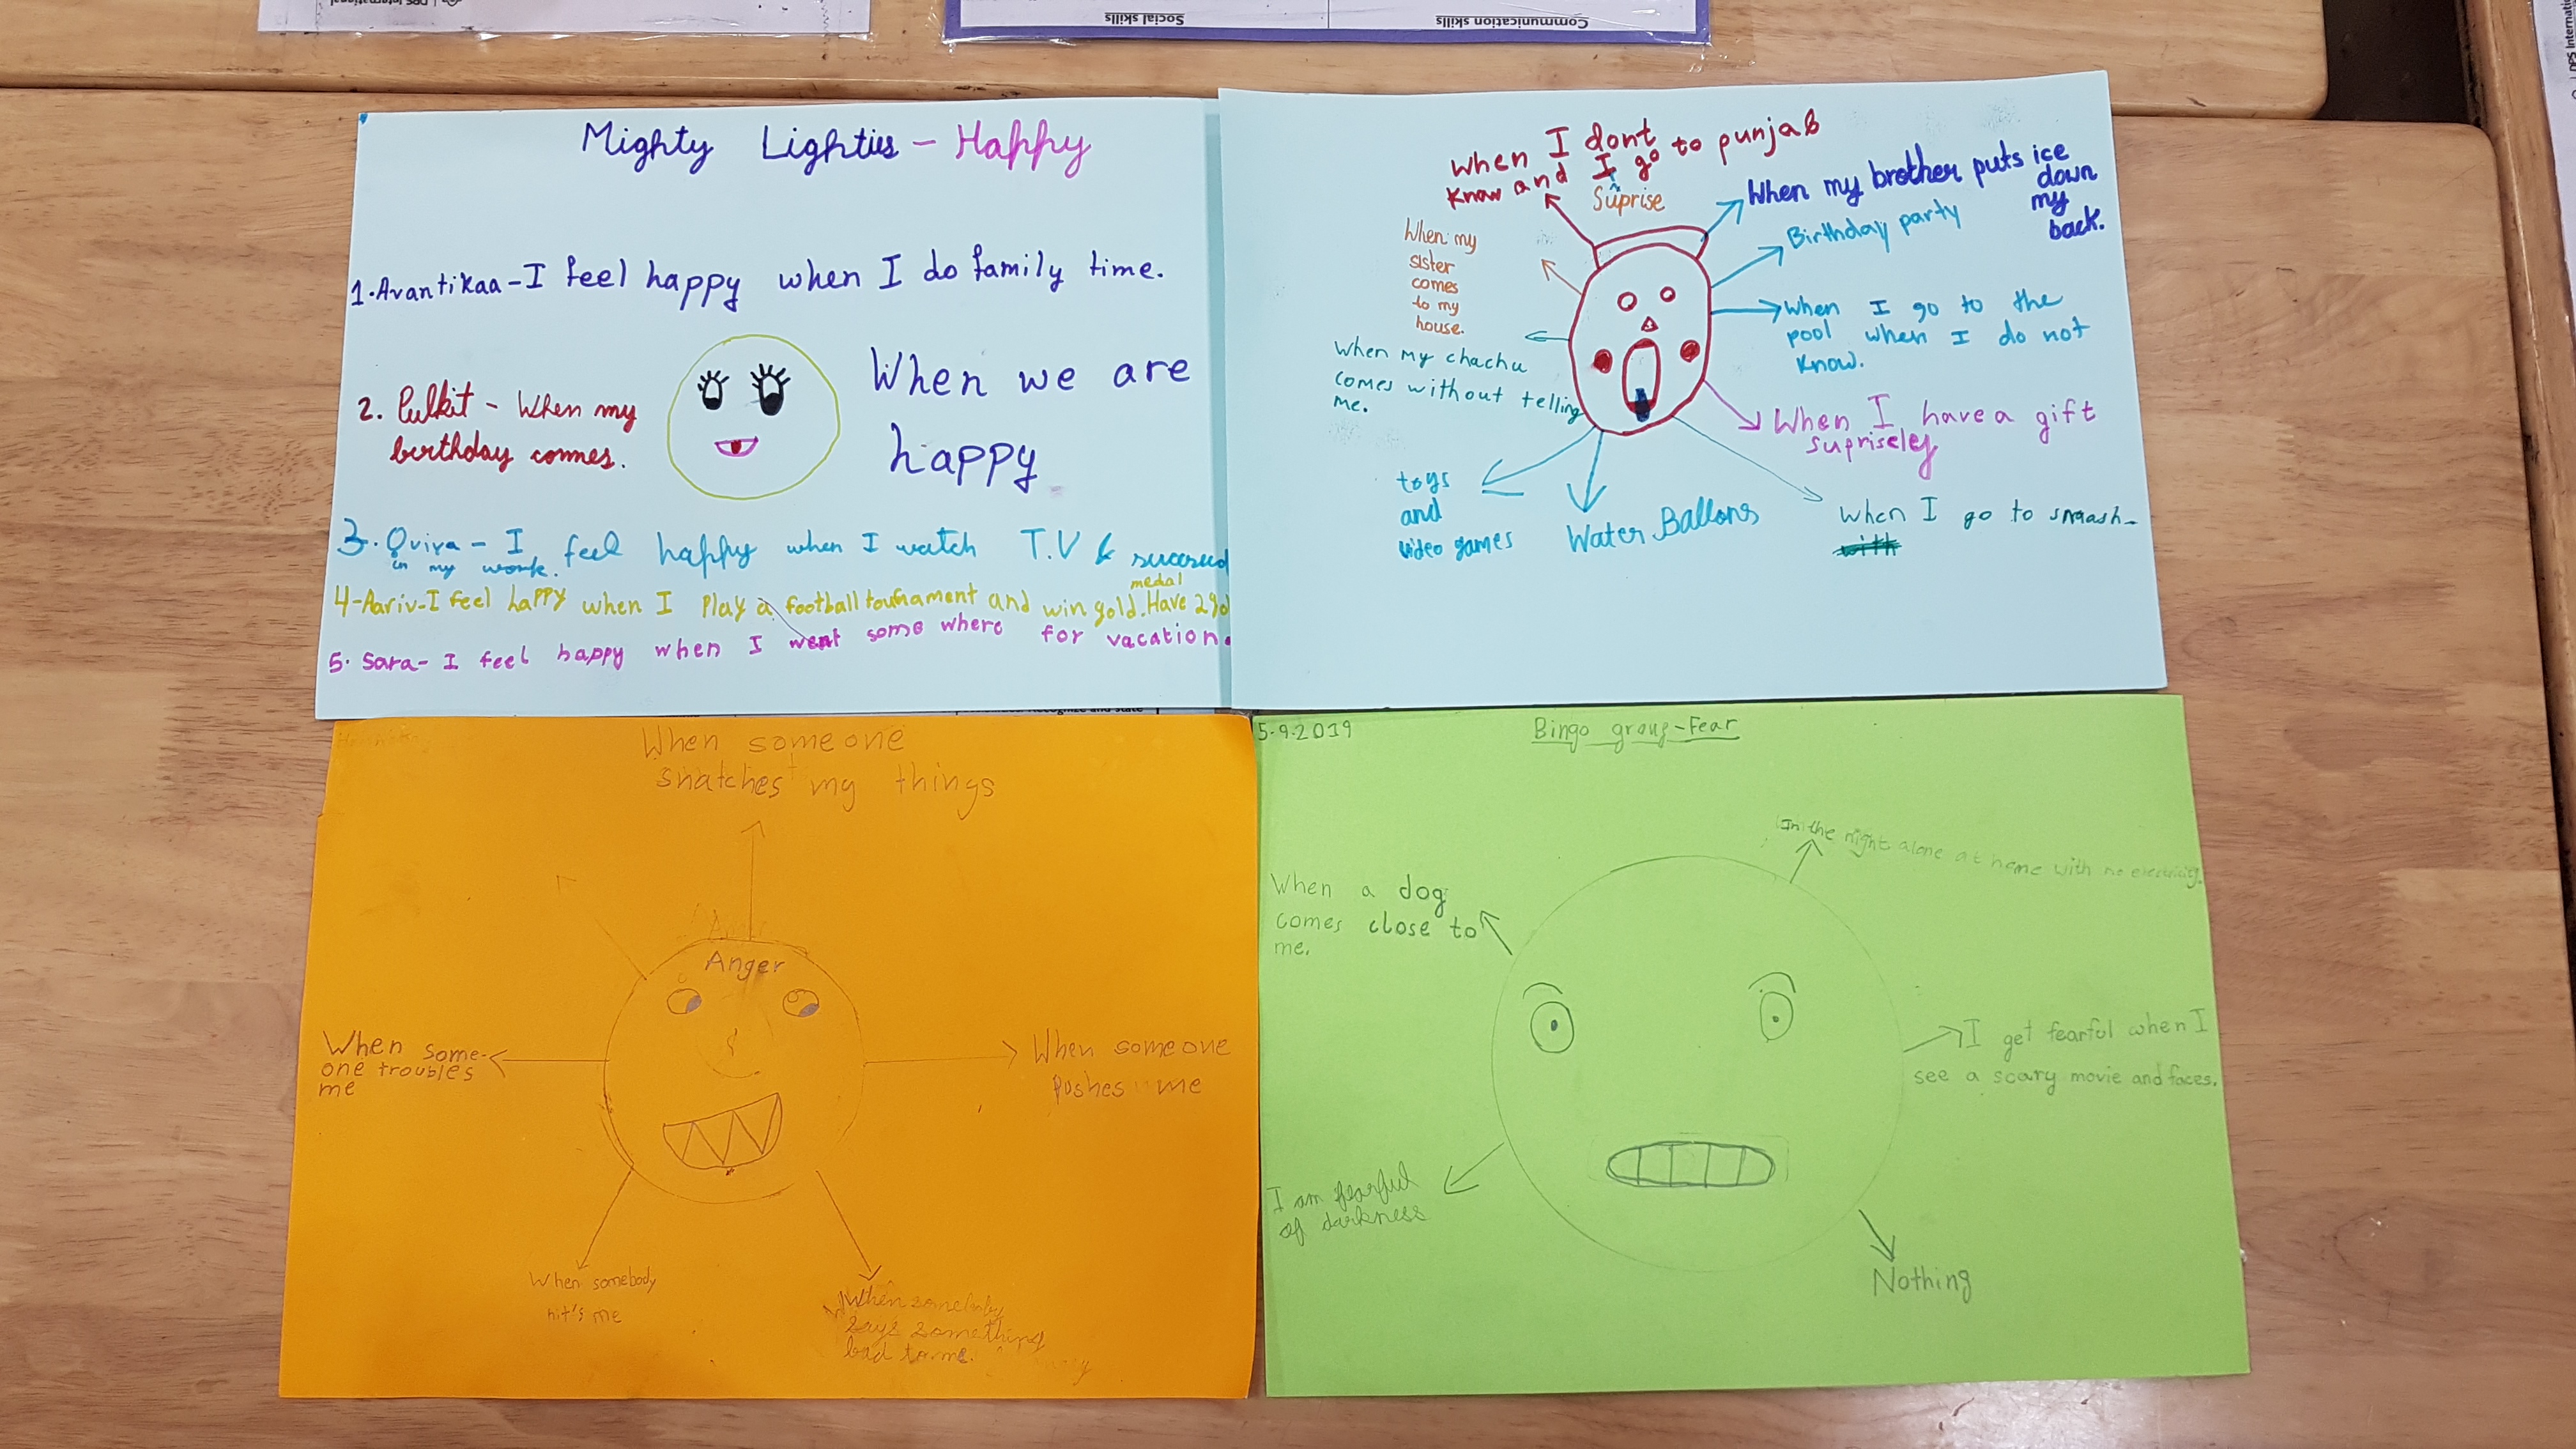 DPS International
Social skills
Communication skills
DPS Internati
Mighty Lighties - Happy
1. Avantikaa - I feel happy when I do family time.
2. Pulkit - When my
birthday comes.
When we are
happy
3. Ovira - I feel happy when I watch T.V &
in my work.
medal
4-Aariv-I feel happy when I Play a football tournament and win gold. Have 2 go
5. Sara- I feel happy when I went some where for vacation.
When I dont
know and I go to punjab
Suprise
When my brother puts ice
down
my
back.
Birthday party
When my
sister
comes
to my
house.
When I go to the
pool when I do not
know.
When my chachu
comes without telling
me.
When I have a gift
supriseley
toys
and
video games
Water Ballons
When I go to smaash-
with
When someone
snatches my things
Anger
When some-
one troubles
me
When someone
pushes me
When somebody
hit's me
When somebody
says something
bad to me.
5.9.2019
Bingo group-Fear
In the night alone at home with no electricity.
When a dog
comes close to
me.
I get fearful when I
see a scary movie and faces.
I am fearful
of darkness
Nothing